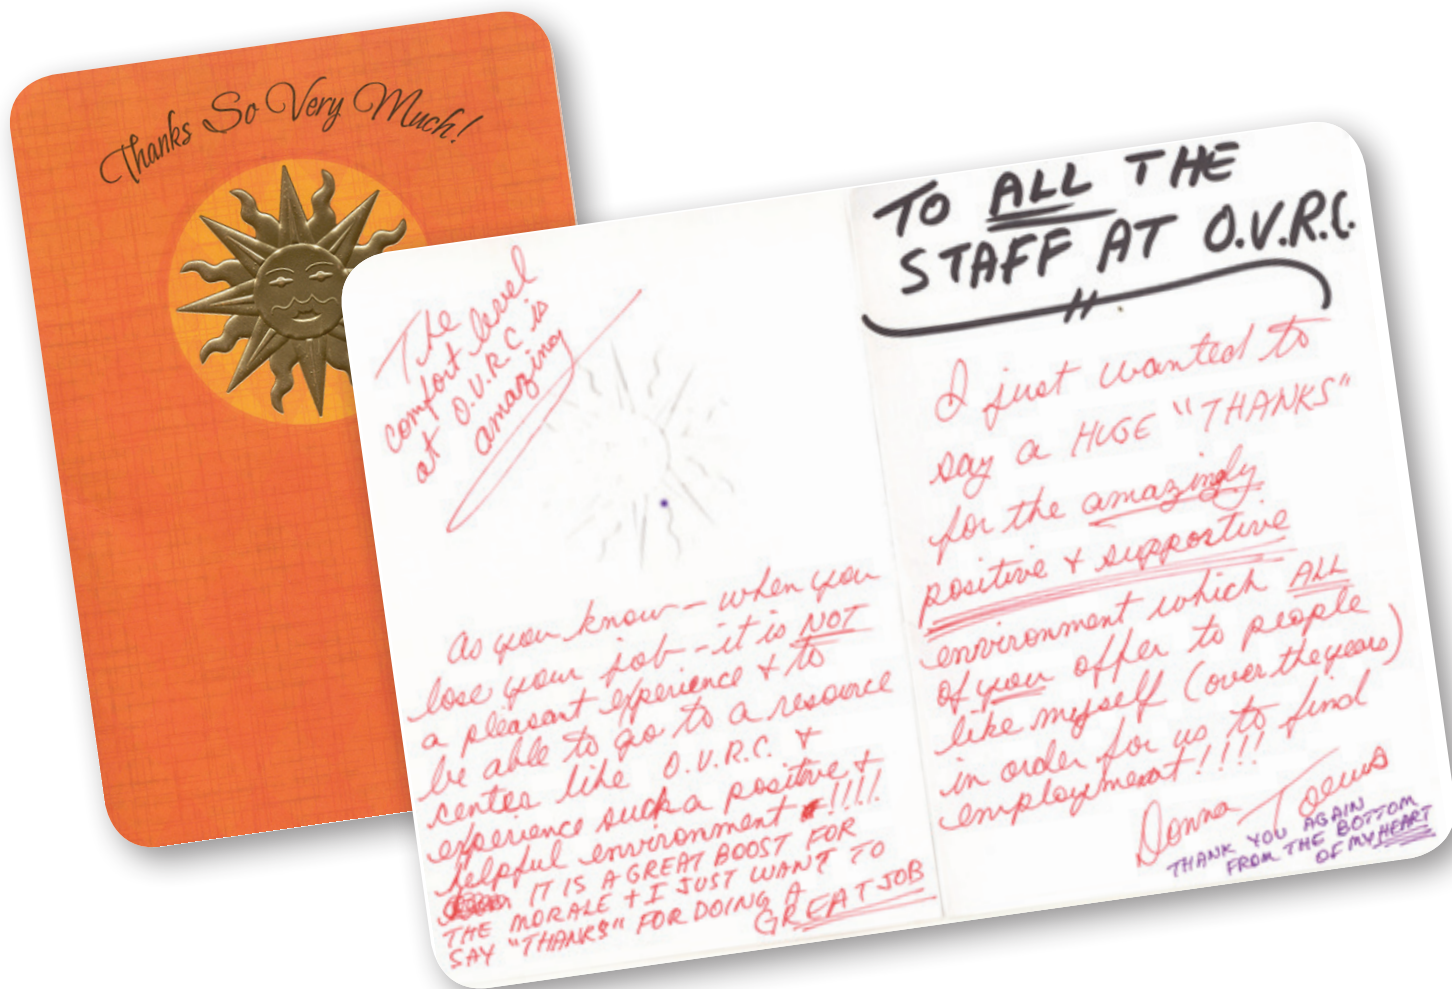 Thanks So Very Much!
The
comfort level
at O.V.R.C is
amazing
As you know - when you
lose your job - it is NOT
a pleasant experience & to
be able to go to a resource
center like O.V.R.C. &
experience such a positive &
helpful environment !!!!
IT IS A GREAT BOOST FOR
THE MORALE + I JUST WANT TO
SAY "THANKS" FOR DOING A
GREAT JOB
TO ALL THE
STAFF AT O.V.R.C.
I just wanted to
say a HUGE "THANKS"
for the amazingly
positive & supportive
environment which ALL
of you offer to people
like myself (over the years)
in order for us to find
employment!!!!
Donna Toews
THANK YOU AGAIN
FROM THE BOTTOM
OF MY HEART